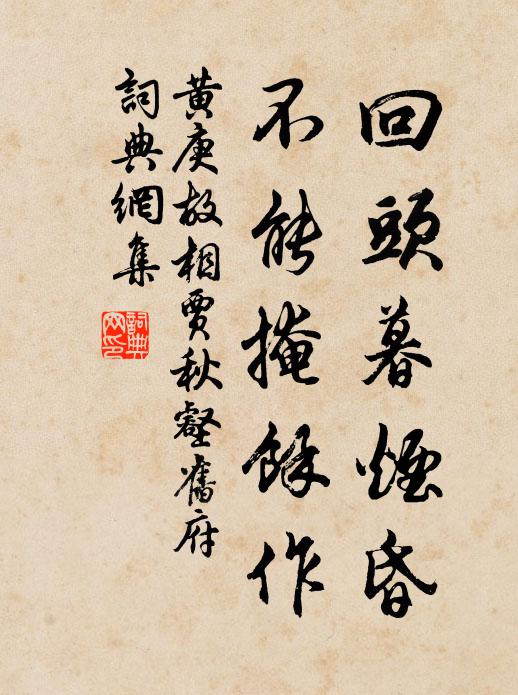 回頭暮煙昏
不能掩餘作
黃庚故相賈秋壑舊府
詞典網集
詞典網印